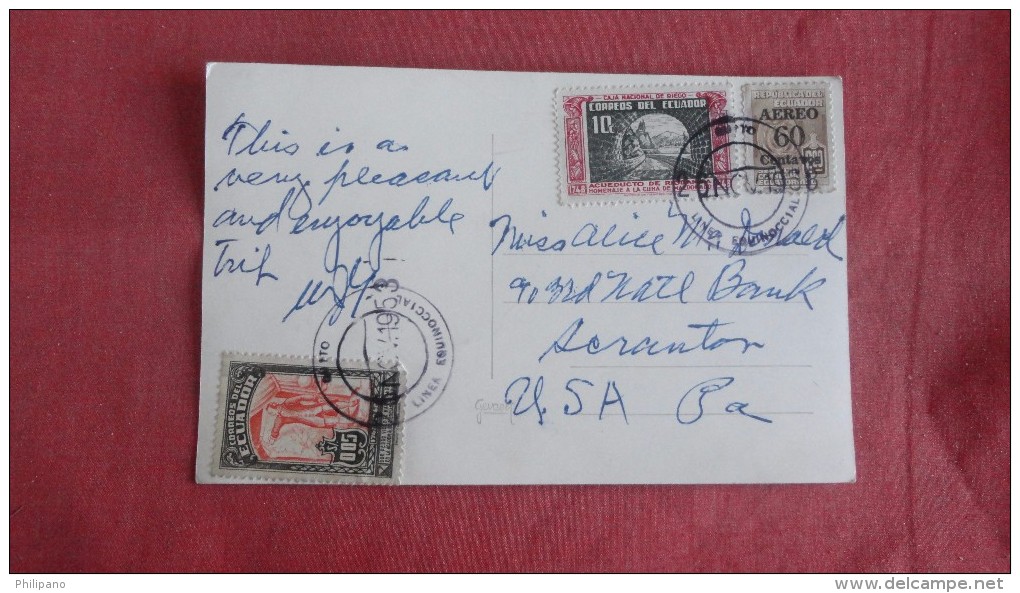 This is a
very pleasant
and enjoyable
Trip
CAJA NACIONAL DE RIEGO
CORREOS DEL ECUADOR
10c
ACUEDUCTO DE
HOMENAJE A LA CUNA DE
REPUBLICA DEL
ECUADOR
AEREO
60
Centavos
LINEA EQUINOCCIAL
Miss Alice McDonald
% 3rd Natl Bank
Scranton
U.S.A Pa
NOV 1953
LINEA EQUINOCCIAL
CORREOS DEL
ECUADOR
0.05
Philipano
http://www.delcampe.net